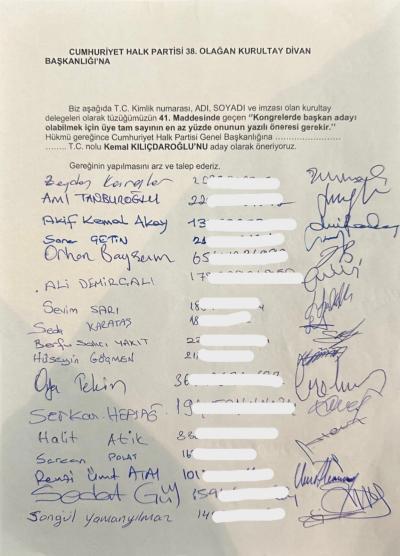 CUMHURİYET HALK PARTİSİ 38. OLAĞAN KURULTAY DİVAN
BAŞKANLIĞI'NA
Biz aşağıda T.C. Kimlik numarası, ADI, SOYADI ve imzası olan kurultay
delegeleri olarak tüzüğümüzün 41. Maddesinde geçen "Kongrelerde başkan adayı
olabilmek için üye tam sayının en az yüzde onunun yazılı öneresi gerekir."
Hükmü gereğince Cumhuriyet Halk Partisi Genel Başkanlığına ........................
........ T.C. nolu Kemal KILIÇDAROĞLU'NU aday olarak öneriyoruz.
Gereğinin yapılmasını arz ve talep ederiz.
Zeydan Karalar 20
Anıl TANBUROĞLU 22
Akif Kemal Akay 13
ÇETİN 21
Orhan 65
ALİ DEMİRÇALI 17
Sevim SARI 18
Seda KARATAŞ 18
YAKIT 22
Hüseyin GÖÇMEN 21
Oya Tekin 36
Serkan 19
Halit Atik 38
Sercan POLAT 16
Remzi Ümit ATAY 101
Sedat Gül 159
Songül Yamanyılmaz 14